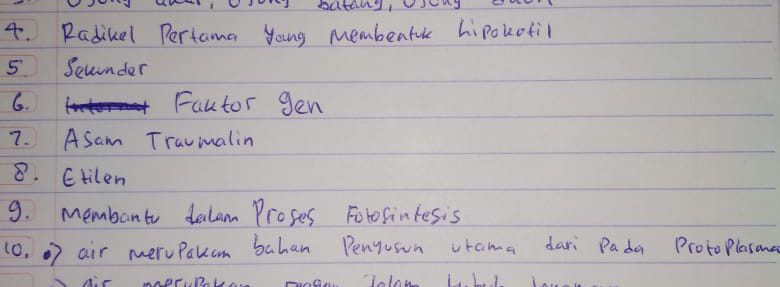 4. Radikel Pertama Yang Membentuk hipokotil
5. Sekunder
6. Faktor gen
7. Asam Traumalin
8. Etilen
9. Membantu dalam Proses Fotosintesis
10. •) air merupakan bahan Penyusun utama dari Pada Protoplasma